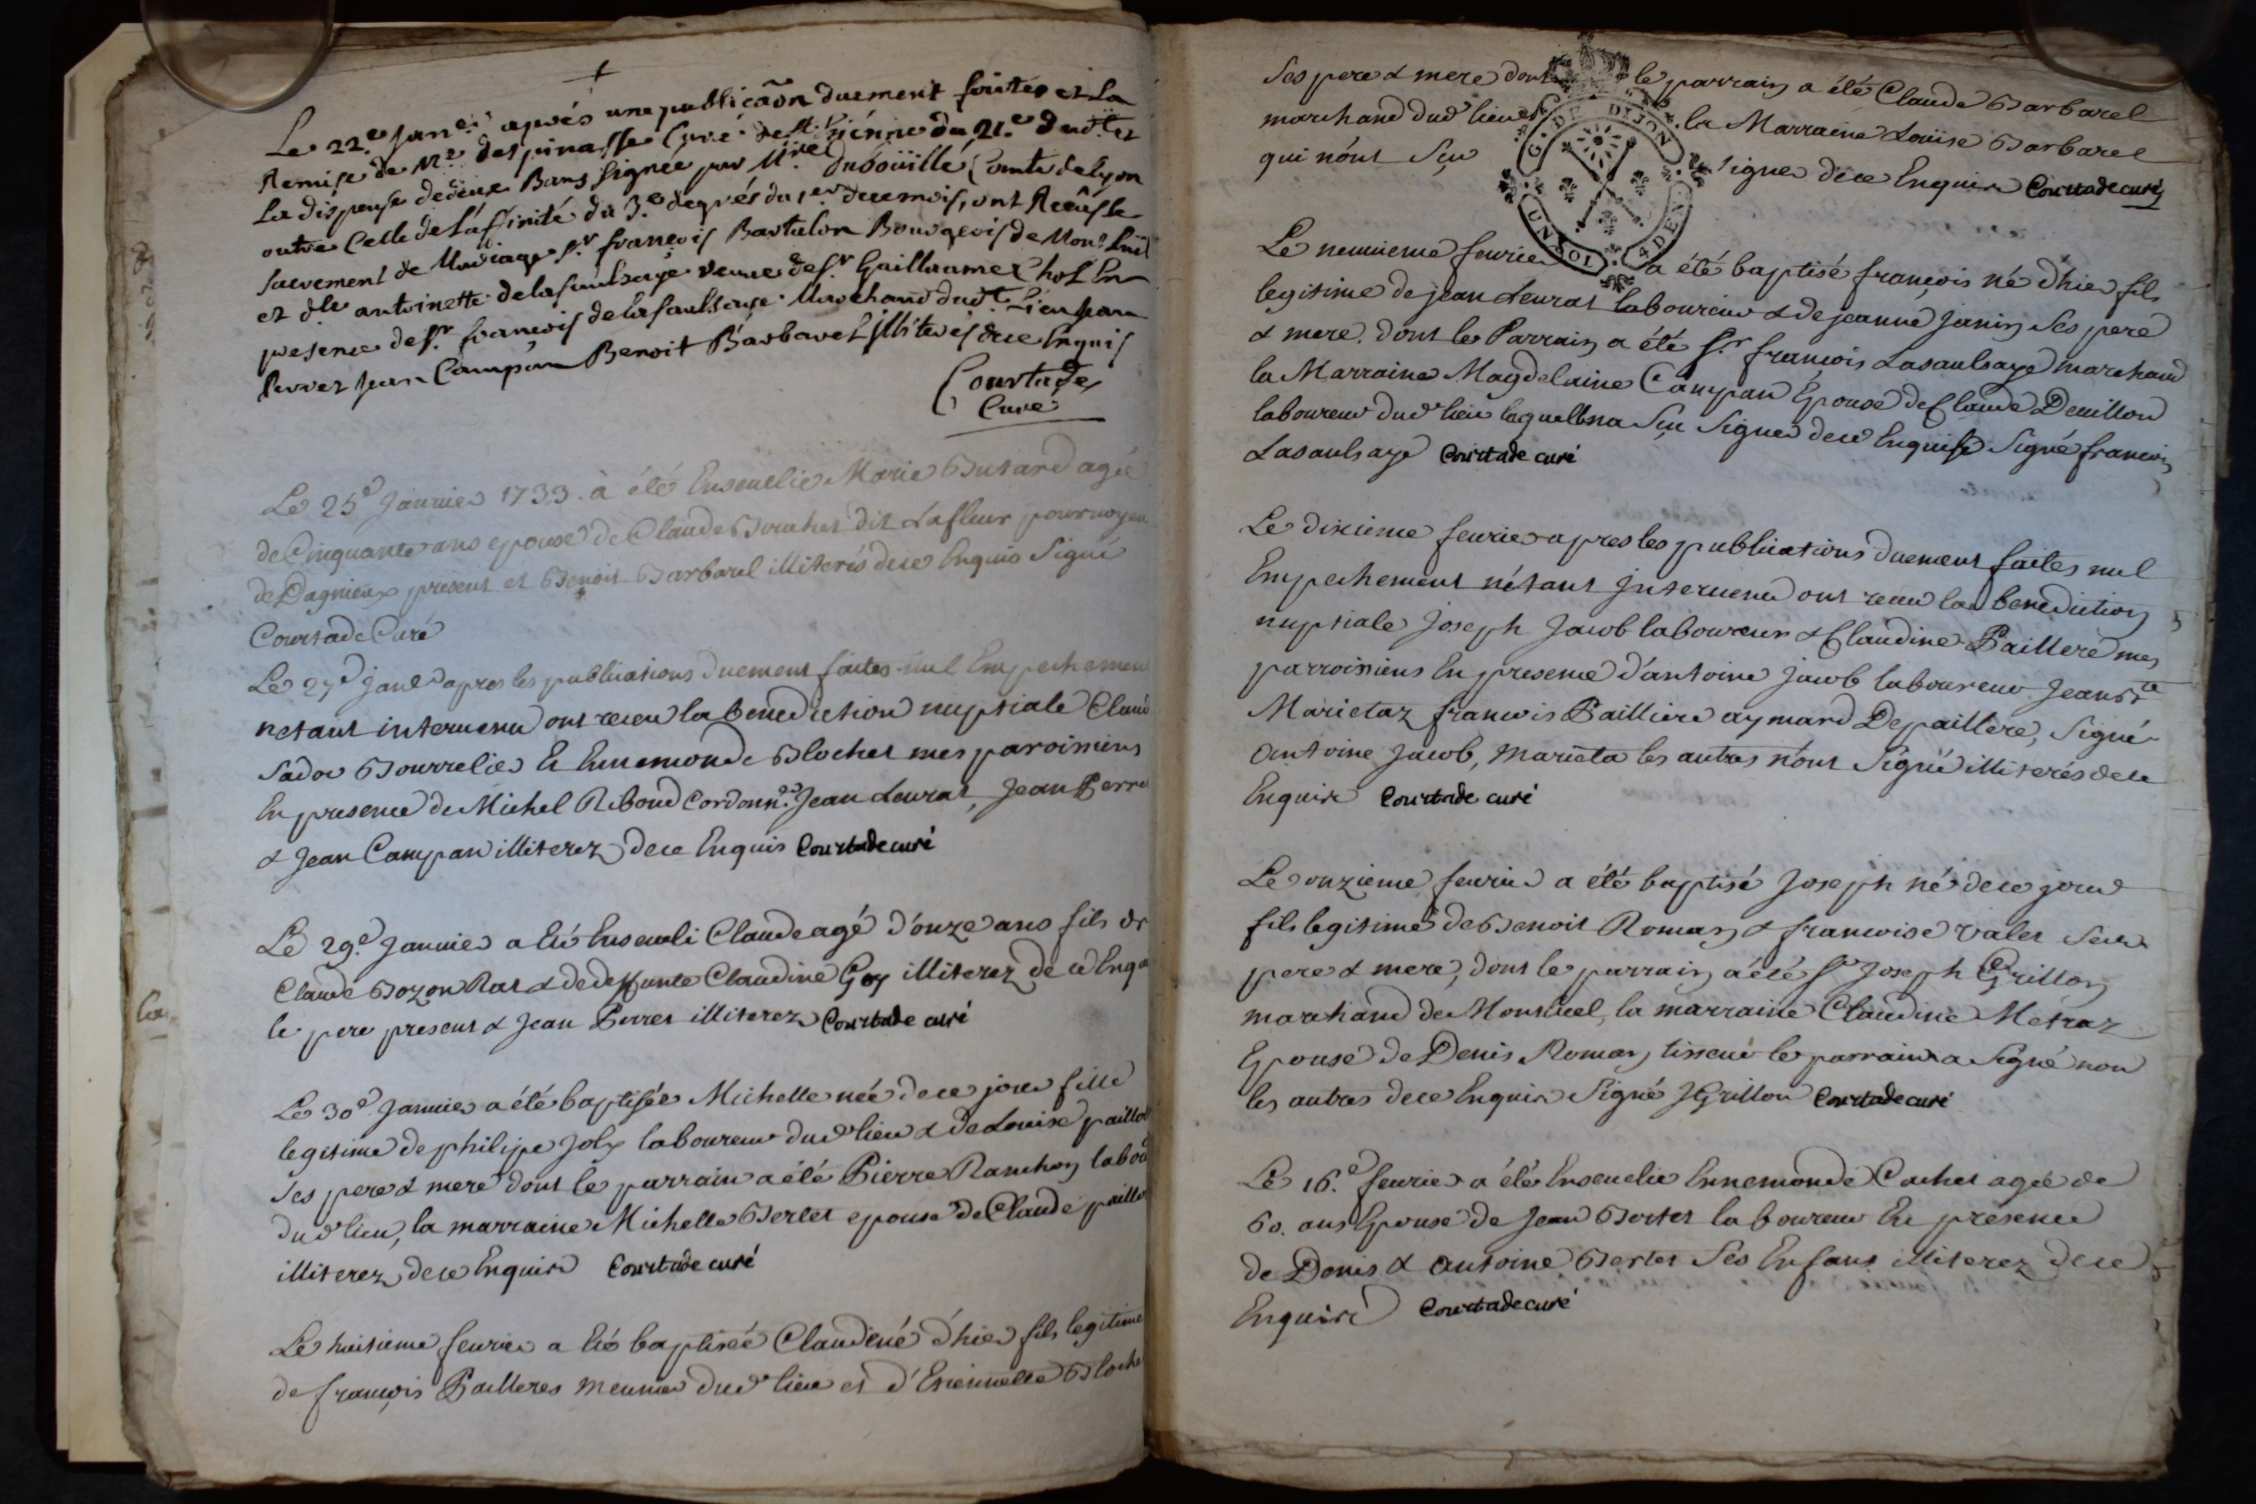 Le 22.e Janer. après une publicãon duement faitte et La
Remise de Mre despinasse Curé de st. Etiénne du 21.e dudt. et
La dispense de deux Bans signée par Mr. Dubouillé Comte de Lyon
outre Celle de L'afinité du 3.e degrés du 1er. de ce mois, ont Receu le
sacrement de Mariage sr. françois Bartalon Bourgeois de Mont Luel
et dlle antoinette delasaulsaye veuve de sr. Guillaume Chol En
presence de sr. françois de la saulsaye Marchand dudt. Lieu Jean
Perret Jean Campan Benoit Barbarel illiterés de ce Enquis
Courtade
Curé
Le 25e Januier 1733. à été Enseuelie Marie Butard agée
de Cinquante ans epouse de Claude Bouchet dit Lafleur pouruoyeu
de Dagnieux present et Benoit Barbarel illiterés de ce Enquis Signé
Courtade Curé
Le 27e Janer apres les publications duement faites nul Empechemen
netant interuenu ont receu la benediction nuptiale Claud
Sadoc Bourrelier & Ennemonde Blochet mes paroissiens
En presence de Michel Riboud Cordonnr. Jean Leurat, Jean Perre
& Jean Campan illiterez de ce Enquis Courtade curé
Le 29e. Januier a été Enseueli Claude agé d'onze ans fils de
Claude Bozon Rat & de deffunte Claudine Goy illiterez de ce Enqu
le pere present & Jean Perret illiterez Courtade curé
Le 30e Januier a été baptisée Michelle née de ce jour fille
legitime de philipe Joly laboureur dud lieu & de Louise paillo
ses pere & mere dont le parrain a été Pierre Ranchon labou
dud lieu, la marraine Michelle Berlet epouse de Claude paillo
illiterez de ce Enquis Courtade curé
Le huitieme feurier a été baptisée Claudiné d'hier fils legitime
de françois Pailleres meunier dud lieu et d'Etiennette Bloche
ses pere & mere dont le parrain a été Claude Barbarel
marchand dud lieu & la Marraine Louise Barbarel
qui n'ont Sçu signer de ce Enquis Courtade curé
G. DE DIJON
UN SOL 4 DEN
Le neuuieme feurier a été baptisé françois né d'hier fils
legitime de jean Leurat laboureur & de jeanne Janin ses pere
& mere. dont le Parrain a été sr. françois Lasaulsaye marchand
la Marraine Magdelaine Campan Epouse de Claude Deuillon
laboureur dud lieu laquelle na Sçu Signer de ce Enquise Signé francois
Lasaulsaye Courtade curé
Le dixieme feurier apres les publications duement faites nul
Empechement n'étant Interuenu ont receu la benediction
nuptiale Joseph Jacob laboureur & Claudine Paillere mes
parroissiens En presence d'antoine Jacob laboureur Jean Bte
Marietaz francois Pailliere aymard Depaillere, Signé
Antoine Jacob, Marieta les autres n'ont Signé illiterés de ce
Enquis Courtade curé
Le onzieme feurier a été baptisé Joseph né de ce jour
fils legitime de Benoit Roman & francoise Valet ses
pere & mere, dont le parrain a été sr Joseph Grillon
marchand de Monluel, la marraine Claudine Métraz
Epouse de Denis Roman tisseur le parrain a Signé non
les autres de ce Enquis Signé JGrillon Courtade curé
Le 16.e feurier a été Enseuelie Ennemonde Cochet agée de
60. ans Epouse de Jean Bertet laboureur En presence
de Denis & Antoine Bertet Ses Enfans illiterez de ce
Enquis Courtade curé